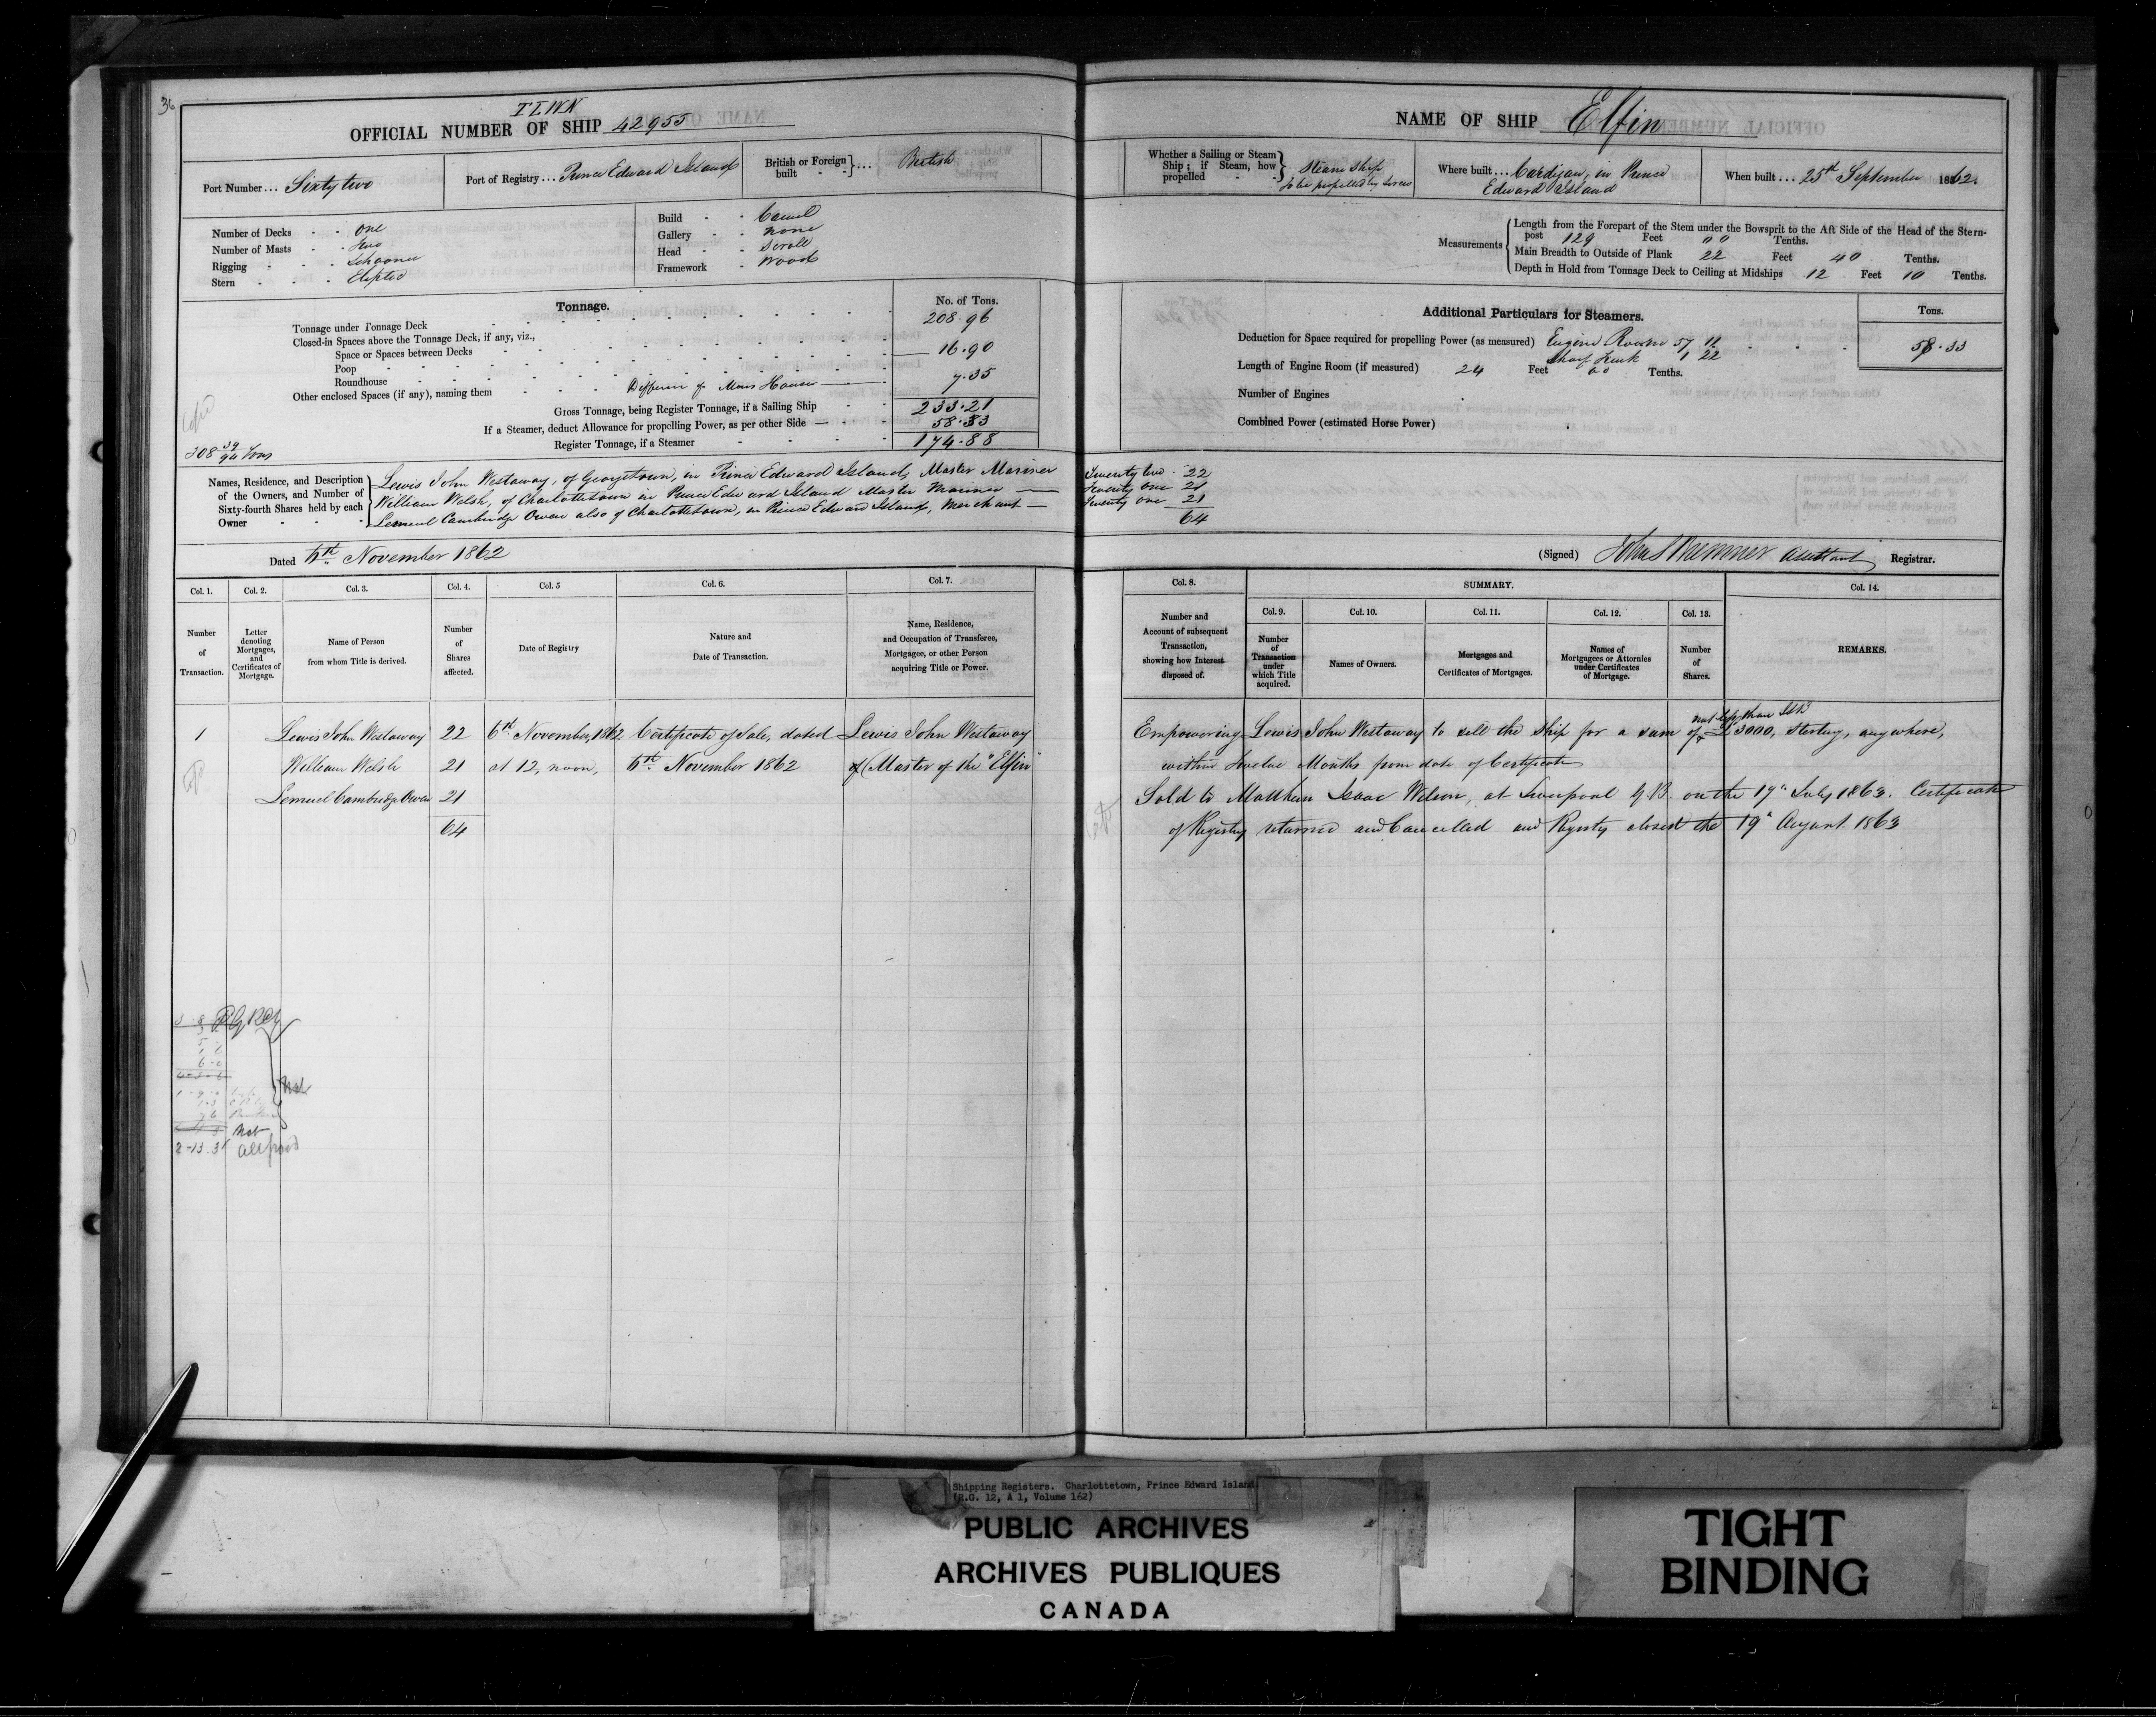 36
T L W N
OFFICIAL NUMBER OF SHIP 42955
Port Number ... Sixty two
Port of Registry ... Prince Edward Island
British or Foreign built } ... British
Number of Decks - - One
Number of Masts - - Two
Rigging - - - Schooner
Stern - - -
Build - - Carvel
Gallery - - None
Head - - Scroll
Framework - Wood
Tonnage.
No. of Tons.
Tonnage under Tonnage Deck 208.96
Closed-in Spaces above the Tonnage Deck, if any, viz.,
Space or Spaces between Decks 16.90
Poop
Roundhouse
Other enclosed Spaces (if any), naming them House 7.35
Gross Tonnage, being Register Tonnage, if a Sailing Ship 233.21
If a Steamer, deduct Allowance for propelling Power, as per other Side 58.33
Register Tonnage, if a Steamer 174.88
Names, Residence, and Description of the Owners, and Number of Sixty-fourth Shares held by each Owner
Lewis John Westaway, of Georgetown, in Prince Edward Island, Master Mariner
William Welsh, of Charlottetown in Prince Edward Island Master Mariner
Lemuel Cambridge Owen also of Charlottetown, in Prince Edward Island, Merchant
Dated 6th November 1862
Col. 1. Col. 2. Col. 3. Col. 4. Col. 5 Col. 6. Col. 7.
Number of Transaction.
Letter denoting Mortgages, and Certificates of Mortgage.
Name of Person from whom Title is derived.
Number of Shares affected.
Date of Registry
Nature and Date of Transaction.
Name, Residence, and Occupation of Transferee, Mortgagee, or other Person acquiring Title or Power.
1 Lewis John Westaway 22 6th November, 1862 Certificate of Sale, dated Lewis John Westaway
William Welsh 21 at 12, noon, 6th November 1862 of (Master of the "Elfin"
Lemuel Cambridge Owen 21
64
2-13.3
NAME OF SHIP Elfin
Whether a Sailing or Steam Ship; if Steam, how propelled } Steam Ship
to be propelled by Screw
Where built ... Cardigan, in Prince
Edward Island
When built ... 25th September 1862.
Measurements
Length from the Forepart of the Stem under the Bowsprit to the Aft Side of the Head of the Stern-
post 129 Feet 00 Tenths.
Main Breadth to Outside of Plank 22 Feet 40 Tenths.
Depth in Hold from Tonnage Deck to Ceiling at Midships 12 Feet 10 Tenths.
Additional Particulars for Steamers.
Tons.
Deduction for Space required for propelling Power (as measured) Engine Room 57 11
Shaft Trunk 1 22
58.33
Length of Engine Room (if measured) 24 Feet 00 Tenths.
Number of Engines
Combined Power (estimated Horse Power)
Twenty two - 22
Twenty one 21
Twenty one 21
64
(Signed) John S Bremner assistant Registrar.
Col. 8. SUMMARY. Col. 14.
Col. 9. Col. 10. Col. 11. Col. 12. Col. 13.
Number and Account of subsequent Transaction, showing how Interest disposed of.
Number of Transaction under which Title acquired.
Names of Owners.
Mortgages and Certificates of Mortgages.
Names of Mortgagees or Attornies under Certificates of Mortgage.
Number of Shares.
REMARKS.
not less than
Empowering Lewis John Westaway to sell the Ship for a sum of £3000, Sterling, anywhere,
within Twelve Months from date of Certificate
Sold to Matthew Isaac Wilson, at Liverpool G.B. on the 17th July 1863. Certificate
of Registry returned and Cancelled and Registry closed the 19th August 1863
Shipping Registers. Charlottetown, Prince Edward Island
(R.G. 12, A 1, Volume 162)
PUBLIC ARCHIVES
ARCHIVES PUBLIQUES
CANADA
TIGHT
BINDING